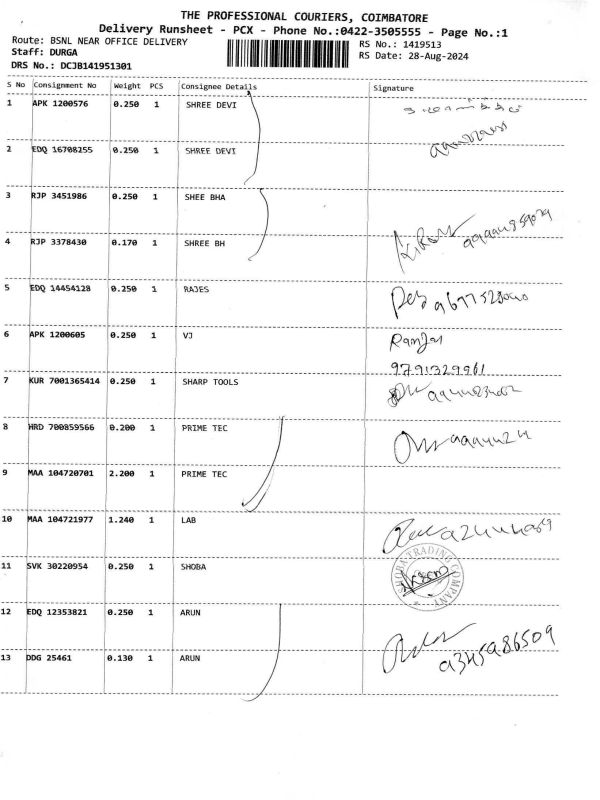 THE PROFESSIONAL COURIERS, COIMBATORE
Delivery Runsheet - PCX - Phone No.:0422-3505555 - Page No.:1
Route: BSNL NEAR OFFICE DELIVERY
RS No.: 1419513
Staff: DURGA
RS Date: 28-Aug-2024
DRS No.: DCJB141951301
S No Consignment No Weight PCS Consignee Details Signature
1 APK 1200576 0.250 1 SHREE DEVI
2 EDQ 16708255 0.250 1 SHREE DEVI
3 RJP 3451986 0.250 1 SHEE BHA
4 RJP 3378430 0.170 1 SHREE BH
5 EDQ 14454128 0.250 1 RAJES
6 APK 1200605 0.250 1 VJ
9791329961
7 KUR 7001365414 0.250 1 SHARP TOOLS
8 HRD 700859566 0.200 1 PRIME TEC
9 MAA 104720701 2.200 1 PRIME TEC
10 MAA 104721977 1.240 1 LAB
11 SVK 30220954 0.250 1 SHOBA
SHOBA TRADING COMPANY
12 EDQ 12353821 0.250 1 ARUN
13 DDG 25461 0.130 1 ARUN
9345986509